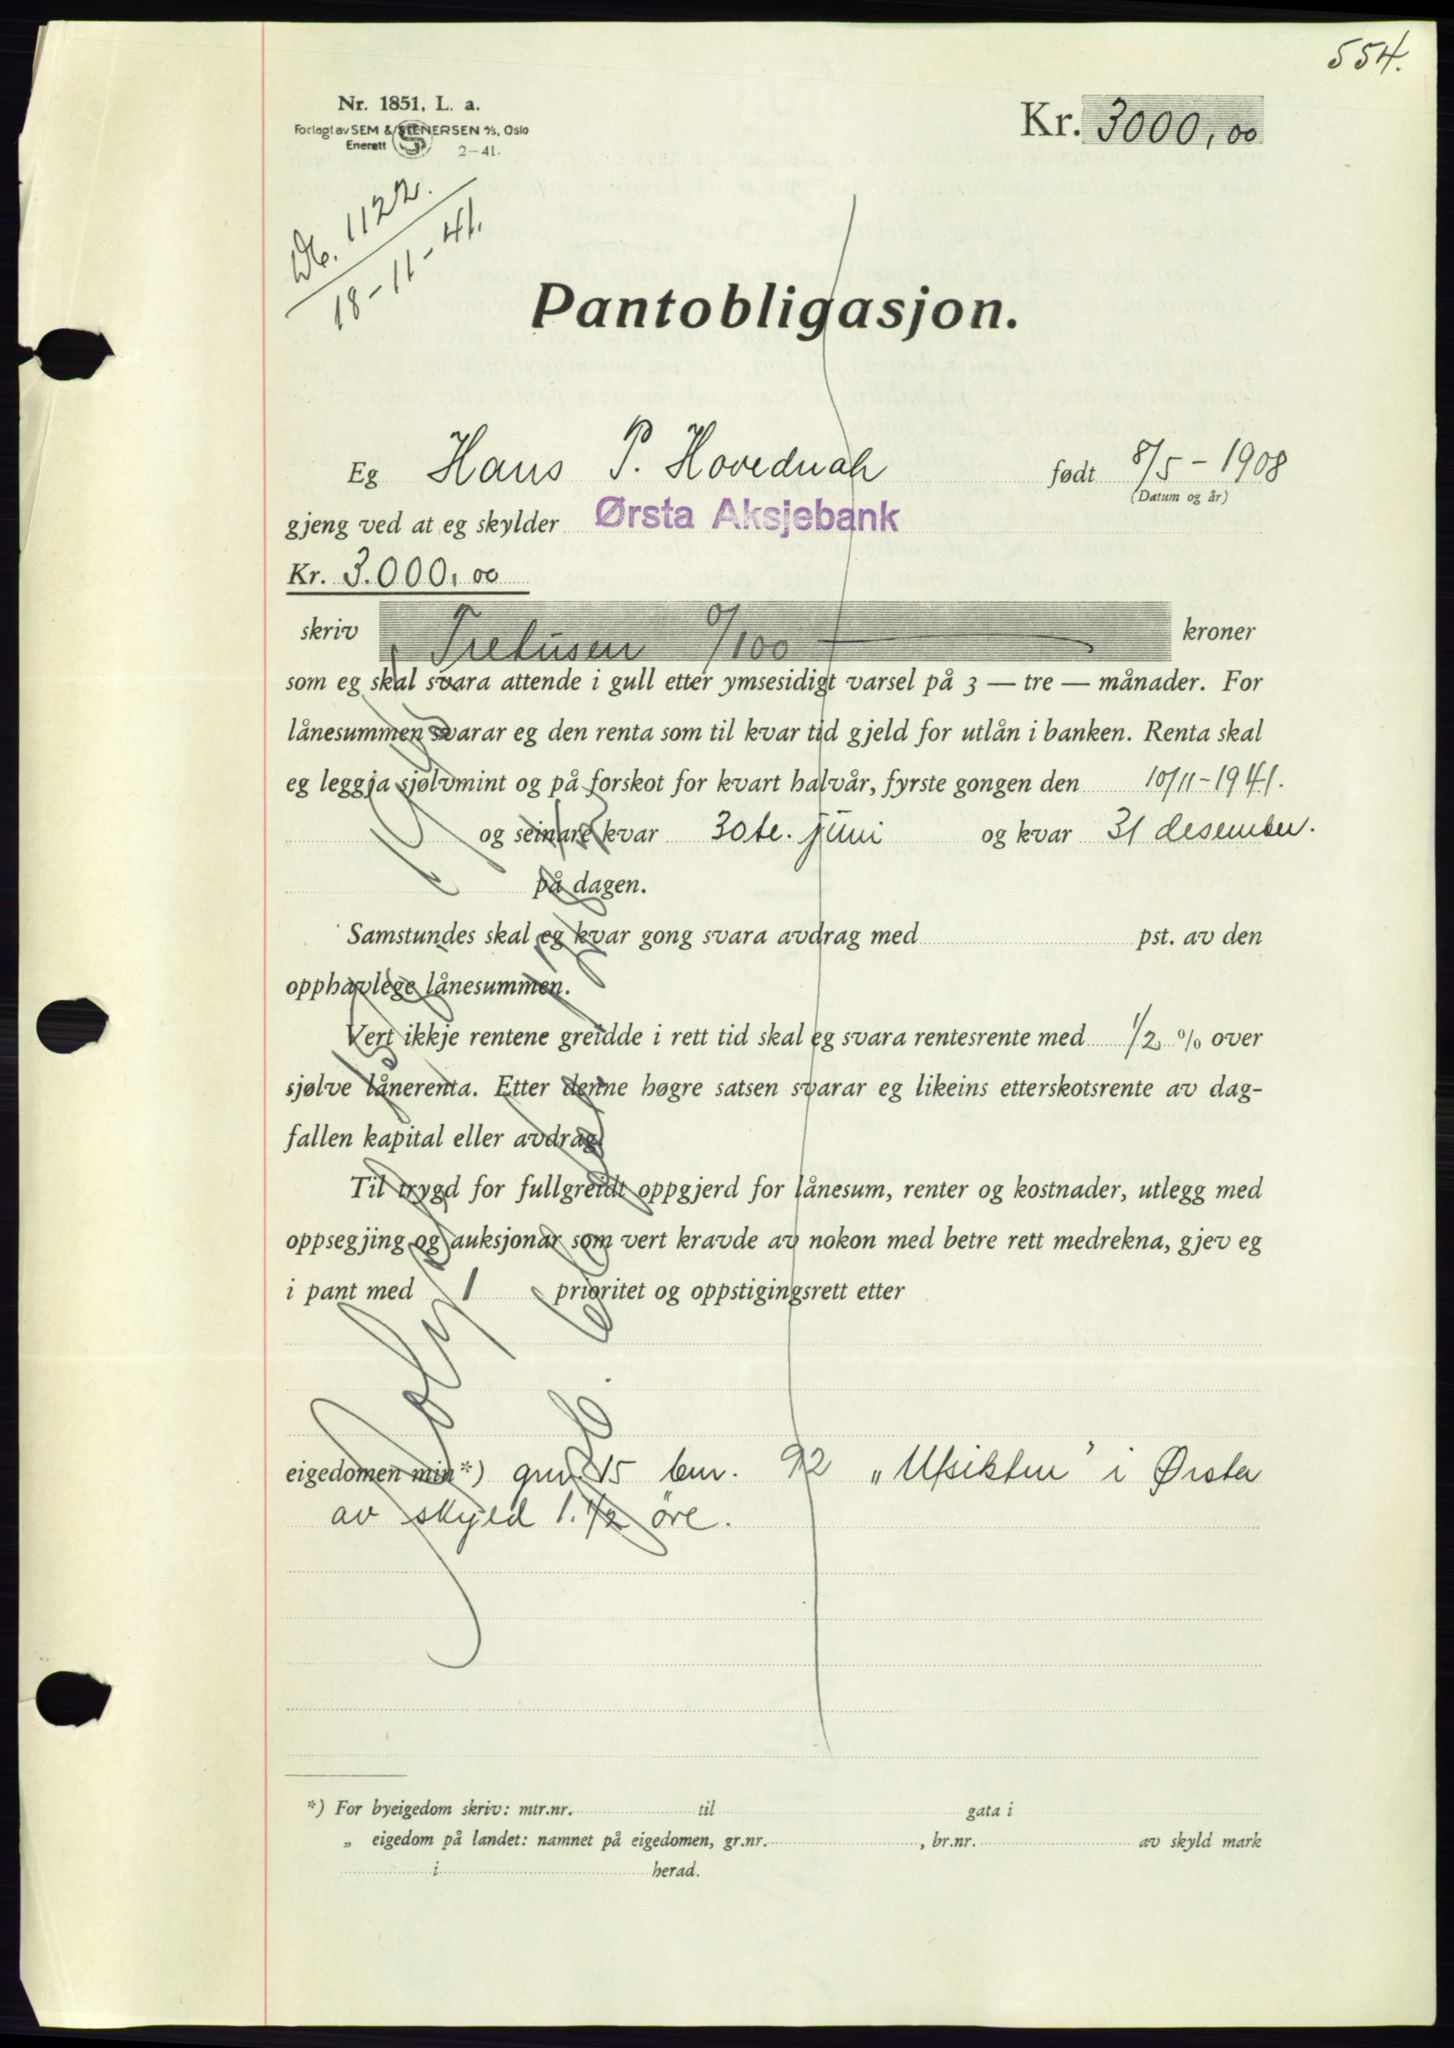 554.
Nr. 1851. L. a.
Forlagt av SEM & STENERSEN A/S, Oslo
Enerett 2-41.
Kr. 3000,00
Db. 1122.
18-11-41.
Pantobligasjon.
Eg Hans P. Hovednak født 8/5-1908
(Datum og år)
gjeng ved at eg skylder Ørsta Aksjebank
Kr. 3.000,00
skriv Tretusen 0/100 kroner
som eg skal svara attende i gull etter ymsesidigt varsel på 3 — tre — månader. For
lånesummen svarar eg den renta som til kvar tid gjeld for utlån i banken. Renta skal
eg leggja sjølvmint og på forskot for kvart halvår, fyrste gongen den 10/11-1941.
og seinare kvar 30te. juni og kvar 31 desember.
på dagen.
Samstundes skal eg kvar gong svara avdrag med pst. av den
opphavlege lånesummen.
Vert ikkje rentene greidde i rett tid skal eg svara rentesrente med 1/2 % over
sjølve lånerenta. Etter denne høgre satsen svarar eg likeins etterskotsrente av dag-
fallen kapital eller avdrag.
Til trygd for fullgreidt oppgjerd for lånesum, renter og kostnader, utlegg med
oppsegjing og auksjonar som vert kravde av nokon med betre rett medrekna, gjev eg
i pant med 1 prioritet og oppstigingsrett etter
eigedomen min*) gnr. 15 bnr. 92 „Utsikten" i Ørsta
av skyld 1.1/2 öre.
*) For byeigedom skriv: mtr.nr. til gata i
„ eigedom på landet: namnet på eigedomen, gr.nr. , br.nr. av skyld mark
i herad.